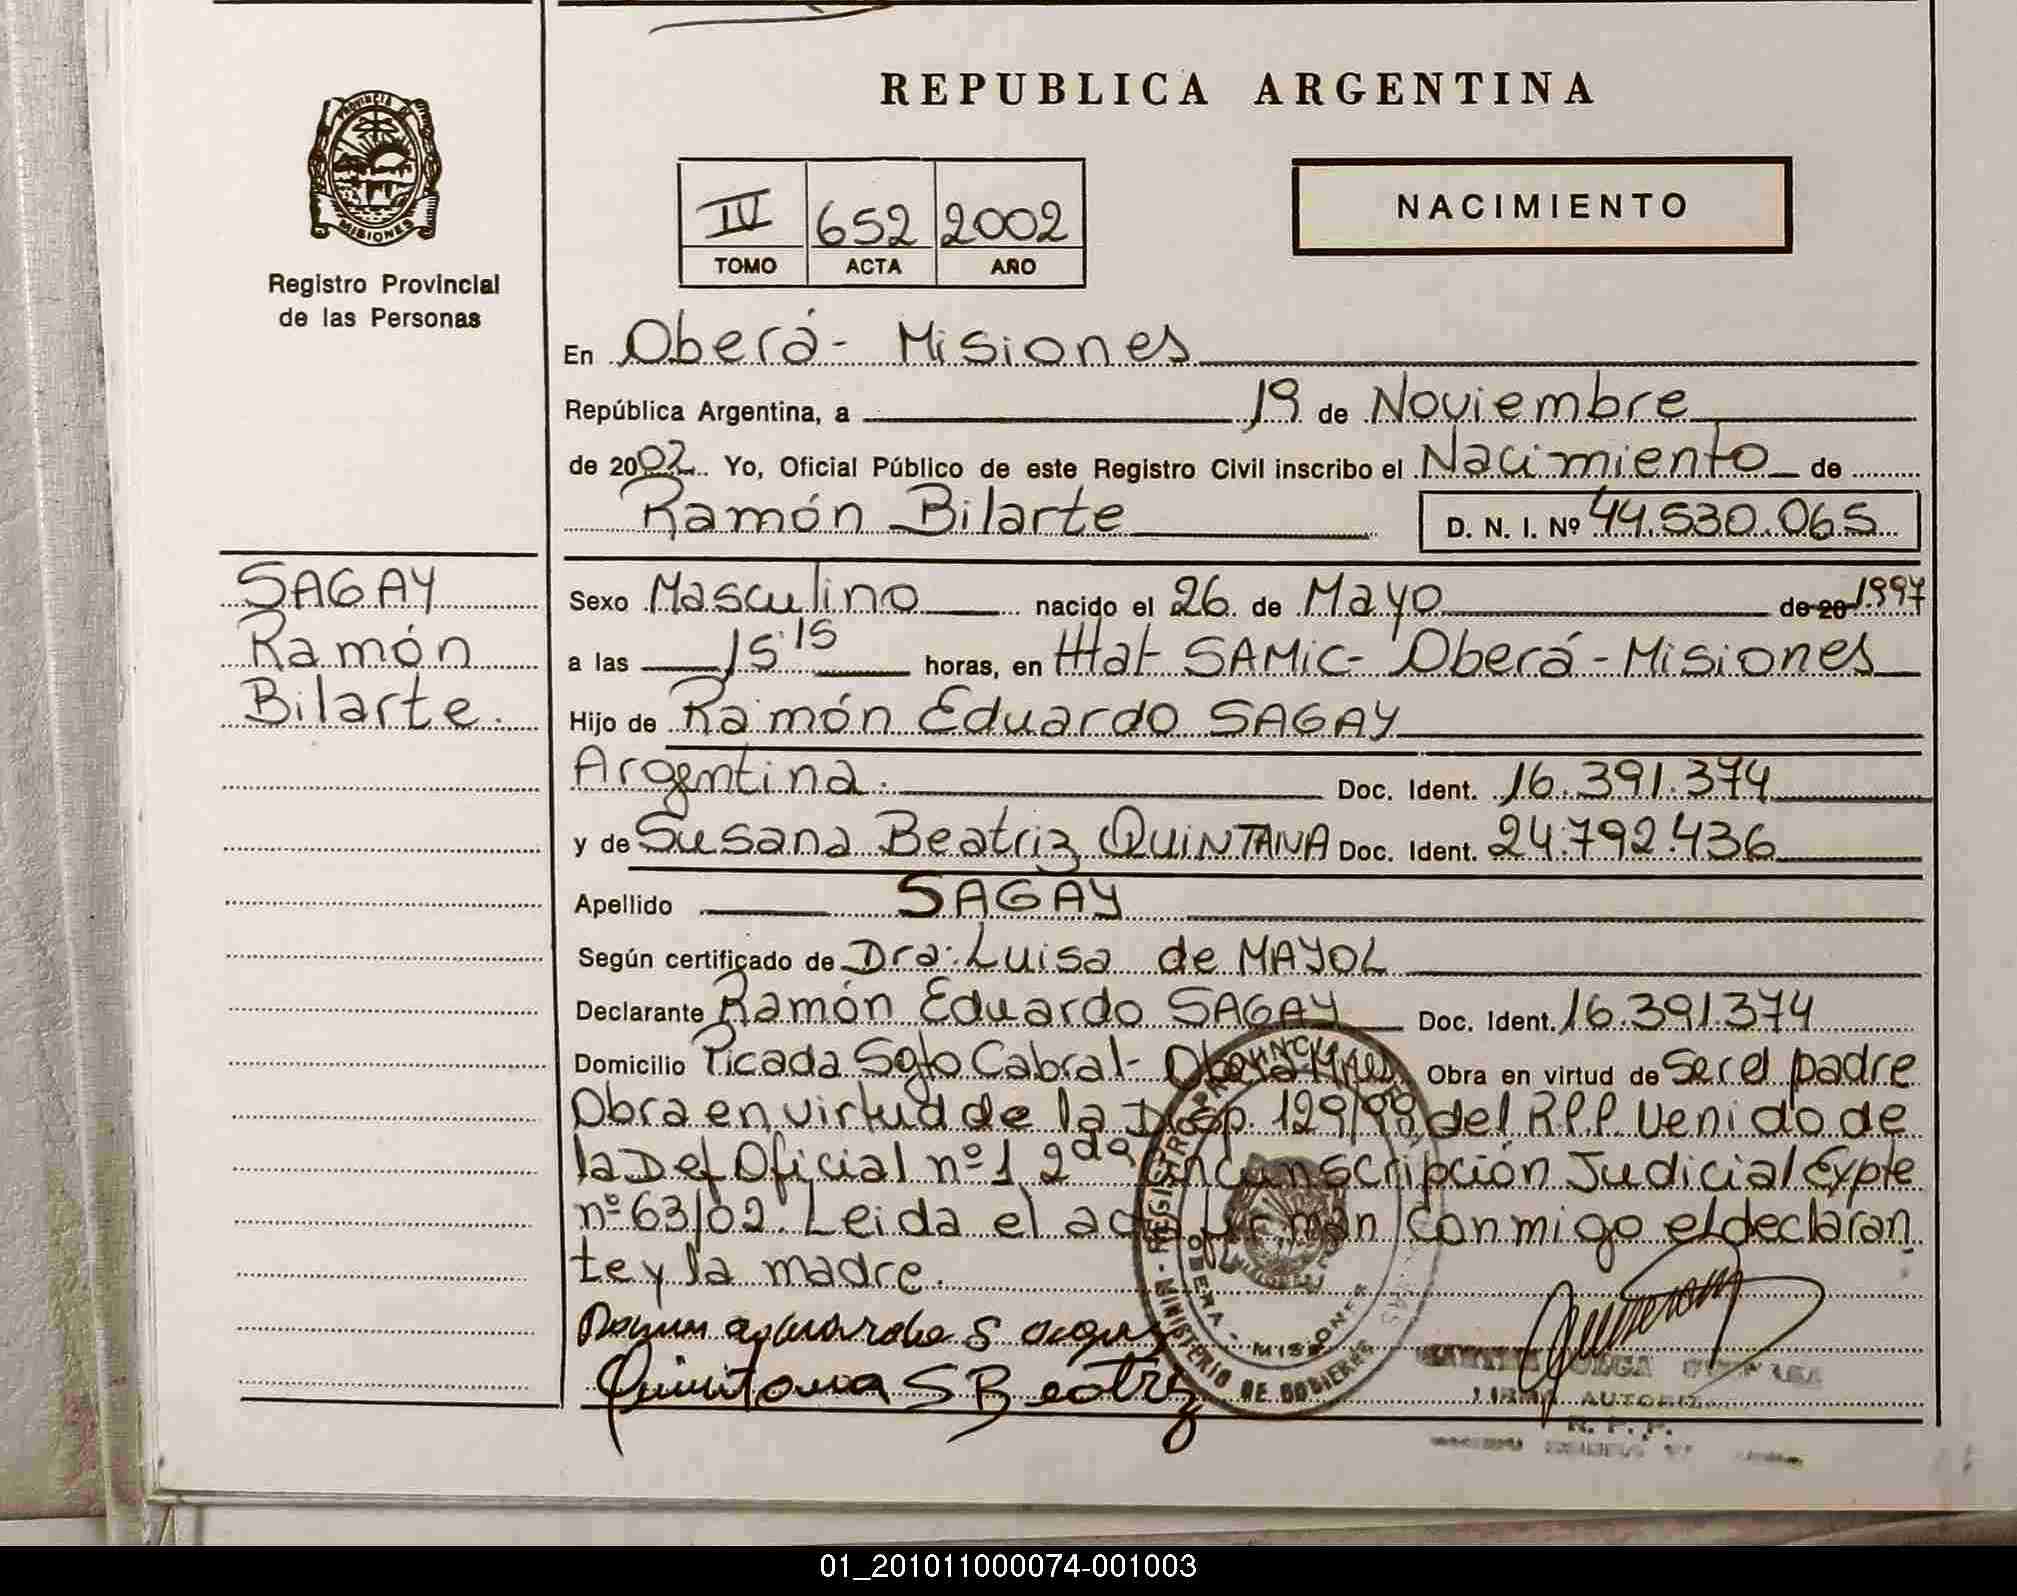 REPUBLICA ARGENTINA
PROVINCIA DE
MISIONES
Registro Provincial
de las Personas
IV 652 2002
TOMO ACTA AÑO
NACIMIENTO
En Oberá - Misiones
República Argentina, a 19 de Noviembre
de 2002 Yo, Oficial Público de este Registro Civil inscribo el Nacimiento de
Ramón Bilarte D. N. I. Nº 44.530.065
SAGAY
Ramón
Bilarte.
Sexo Masculino nacido el 26 de Mayo de 20 1997
a las 15:15 horas, en Hat SAMIC- Oberá - Misiones
Hijo de Ramón Eduardo SAGAY
Argentina. Doc. Ident. 16.391.374
y de Susana Beatriz QUINTANA Doc. Ident. 24.792.436
Apellido SAGAY
Según certificado de Dra: Luisa de MAYOL
Declarante Ramón Eduardo SAGAY Doc. Ident. 16.391.374
Domicilio Picada Sgto Cabral- Oberá Mnes Obra en virtud de Ser el padre
Obra en virtud de la Disp. 129/98 del R.P.P. Venido de
la Def Oficial nº 1 2da Circunscripción Judicial Expte
nº 63/02. Leida el acta firman conmigo el declaran
te y la madre.
Quintana S Beatriz
OBERA - MISIONES
MINISTERIO DE GOBIERNO
FIRMA AUTORIZ
R. P. P.
01_201011000074-001003